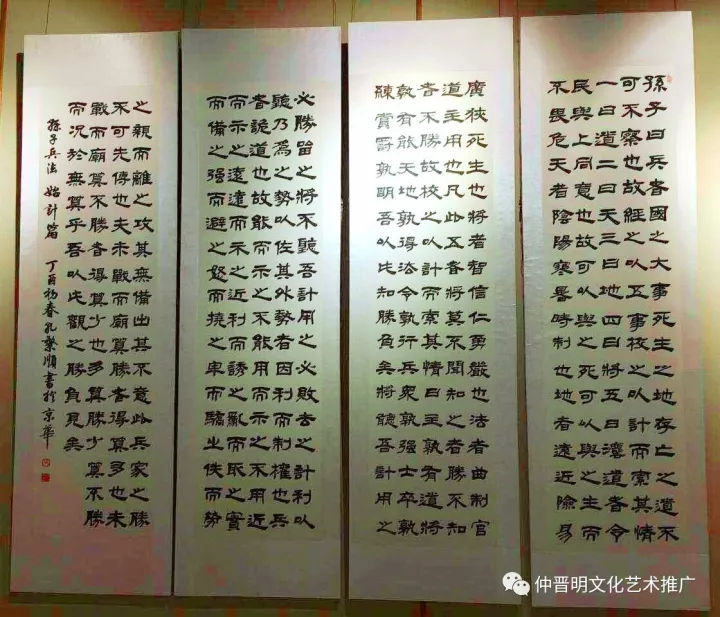 孫子曰兵者國之大事死生之地存亡之道不
可不察也故經之以五事校之以計而索其情
一曰道二曰天三曰地四曰將五曰灋道者令
民與上同意也故可以與之死可以與之生而
不畏危天者陰陽寒暑時制也地者遠近險易
廣狹死生也將者智信仁勇嚴也法者曲制官
道主用也凡此五者將莫不聞知之者勝不知
者不勝故校之以計而索其情曰主孰有道將
孰有能天地孰得法令孰行兵衆孰强士卒孰
練賞罰孰明吾以此知勝負矣將聽吾計用之
必勝留之將不聽吾計用之必敗去之計利以
聽乃為之勢以佐其外勢者因利而制權也兵
者詭道也故能而示之不能用而示之不用近
而示之遠遠而示之近利而誘之亂而取之實
而備之强而避之怒而撓之卑而驕之佚而勞
之親而離之攻其無備出其不意此兵家之勝
不可先傳也夫未戰而廟算勝者得算多也未
戰而廟算不勝者得算少也多算勝少算不勝
而況於無算乎吾以此觀之勝負見矣
孫子兵法 始計篇 丁酉初春孔繁順書於京華
仲晋明文化艺术推广